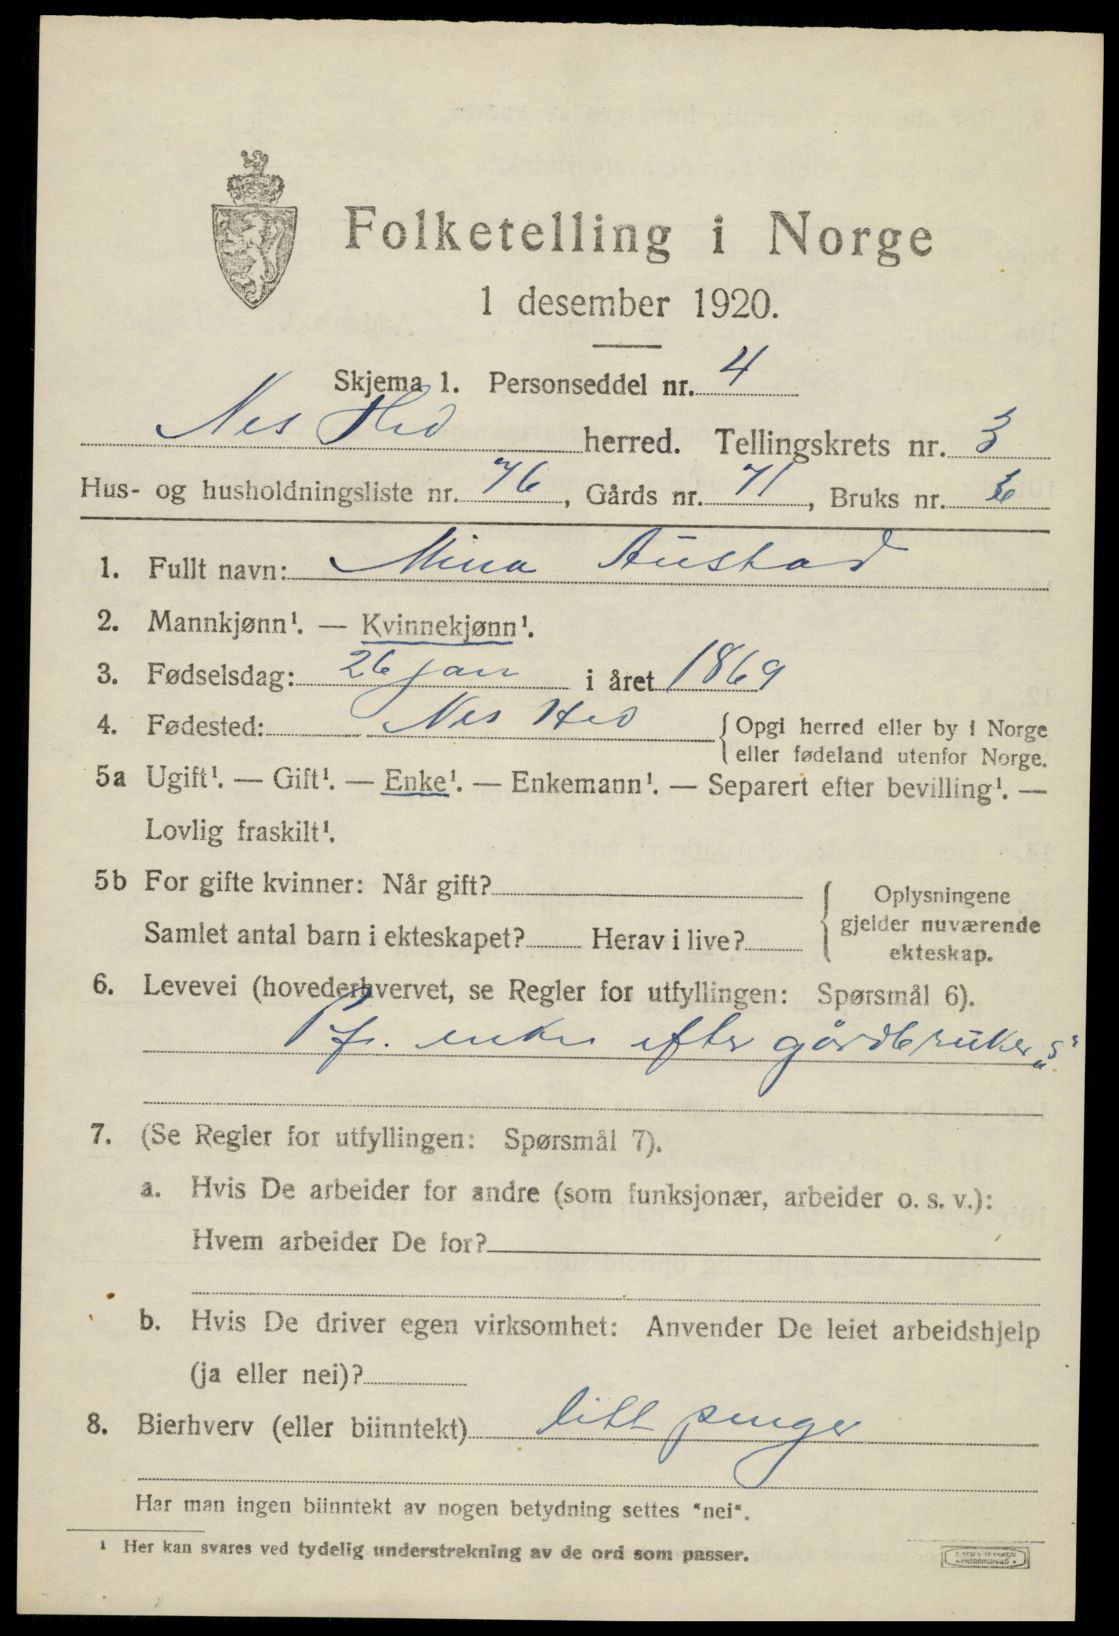 Folketelling i Norge
1 desember 1920.
Skjema 1. Personseddel nr. 4
Nes Hed herred. Tellingskrets nr. 3
Hus- og husholdningsliste nr. 76, Gårds nr. 71, Bruks nr. 3
1. Fullt navn: Mina Austad
2. Mannkjønn¹. — Kvinnekjønn¹.
3. Fødselsdag: 26 jan i året 1869
4. Fødested: Nes Hed {Opgi herred eller by i Norge
eller fødeland utenfor Norge.
5a Ugift¹. — Gift¹. — Enke¹. — Enkemann¹. — Separert efter bevilling¹. —
Lovlig fraskilt¹.
5b For gifte kvinner: Når gift? { Oplysningene
gjelder nuværende
Samlet antal barn i ekteskapet? Herav i live?
ekteskap.
6. Levevei (hovederhvervet, se Regler for utfyllingen: Spørsmål 6).
fr. enke efter gårdbruker „s"
7. (Se Regler for utfyllingen: Spørsmål 7).
a. Hvis De arbeider for andre (som funksjonær, arbeider o. s. v.):
Hvem arbeider De for?
b. Hvis De driver egen virksomhet: Anvender De leiet arbeidshjelp
(ja eller nei)?
8. Bierhverv (eller biinntekt) litt penger
Har man ingen biinntekt av nogen betydning settes "nei".
¹ Her kan svares ved tydelig understrekning av de ord som passer.